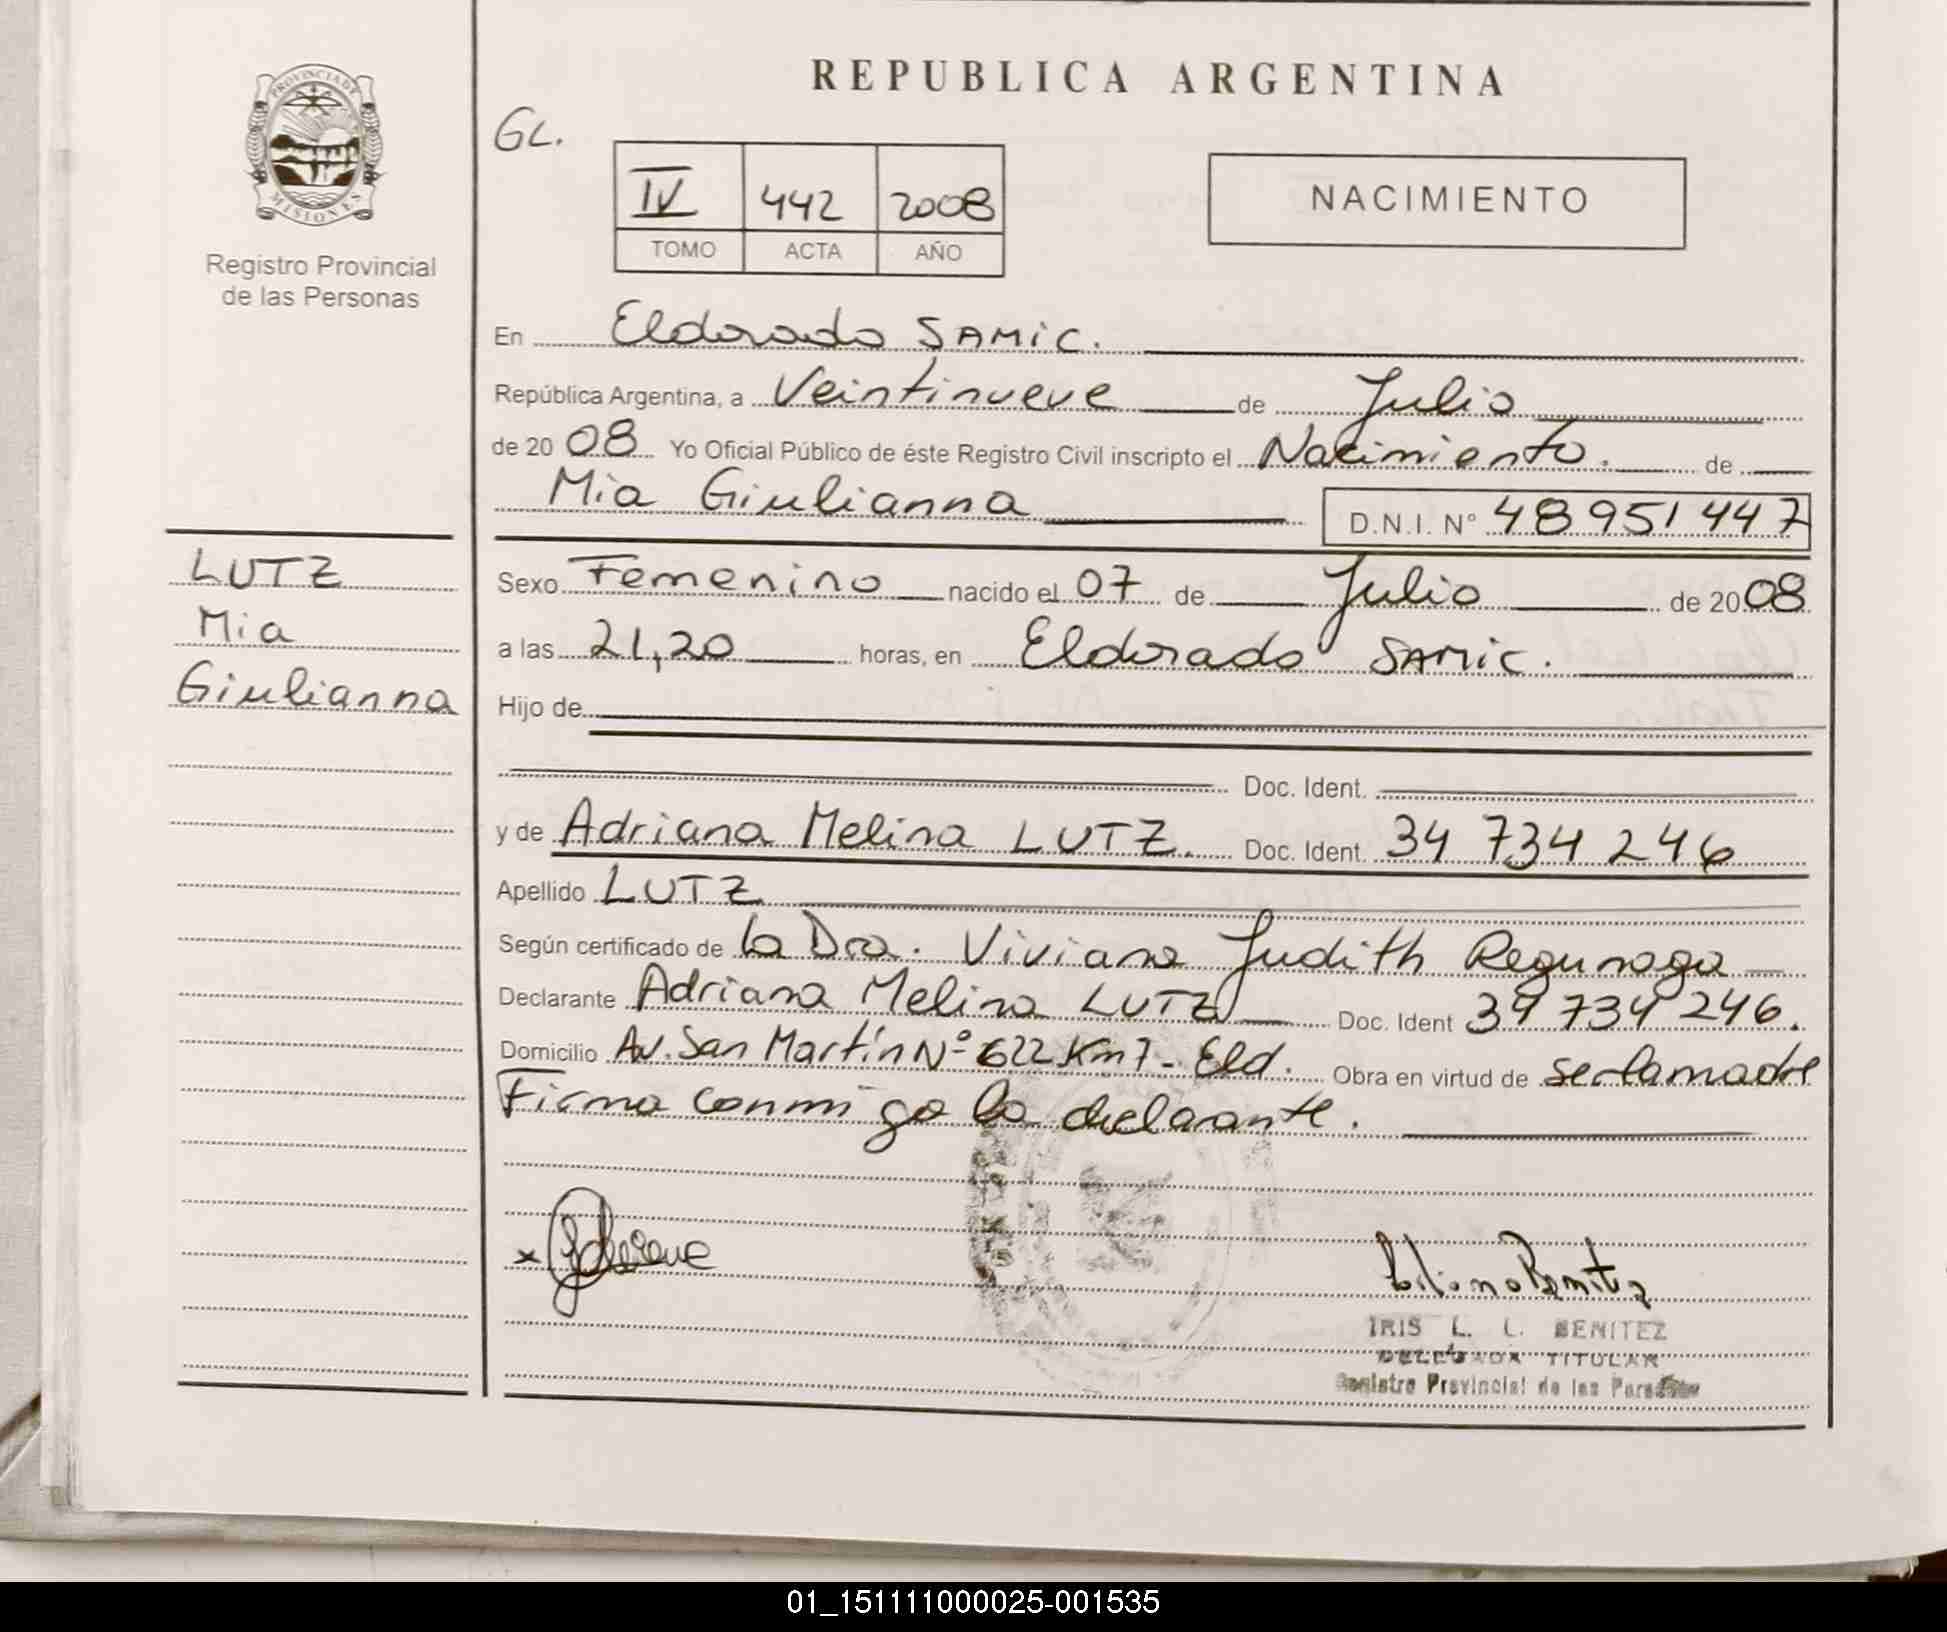 PROVINCIA DE
MISIONES
Registro Provincial
de las Personas
LUTZ
Mia
Giulianna
REPUBLICA ARGENTINA
GL.
IV 442 2008
TOMO ACTA AÑO
NACIMIENTO
En Eldorado SAMIC.
República Argentina, a Veintinueve de Julio
de 2008 Yo Oficial Público de éste Registro Civil inscripto el Nacimiento. de
Mia Giulianna D.N.I. N° 48951447
Sexo Femenino nacido el 07 de Julio de 2008
a las 21,20 horas, en Eldorado SAMIC.
Hijo de
Doc. Ident.
y de Adriana Melina LUTZ. Doc. Ident. 34 734 246
Apellido LUTZ
Según certificado de la Dra. Viviana Judith Regunaga
Declarante Adriana Melina LUTZ Doc. Ident 34 734 246.
Domicilio Av. San Martín N° 622 Km 7 - Eld. Obra en virtud de ser la madre
Firma conmigo la declarante.
x
Liliana Benitez
IRIS L. L. BENITEZ
DELEGADA TITULAR
Registro Provincial de las Personas
01_151111000025-001535